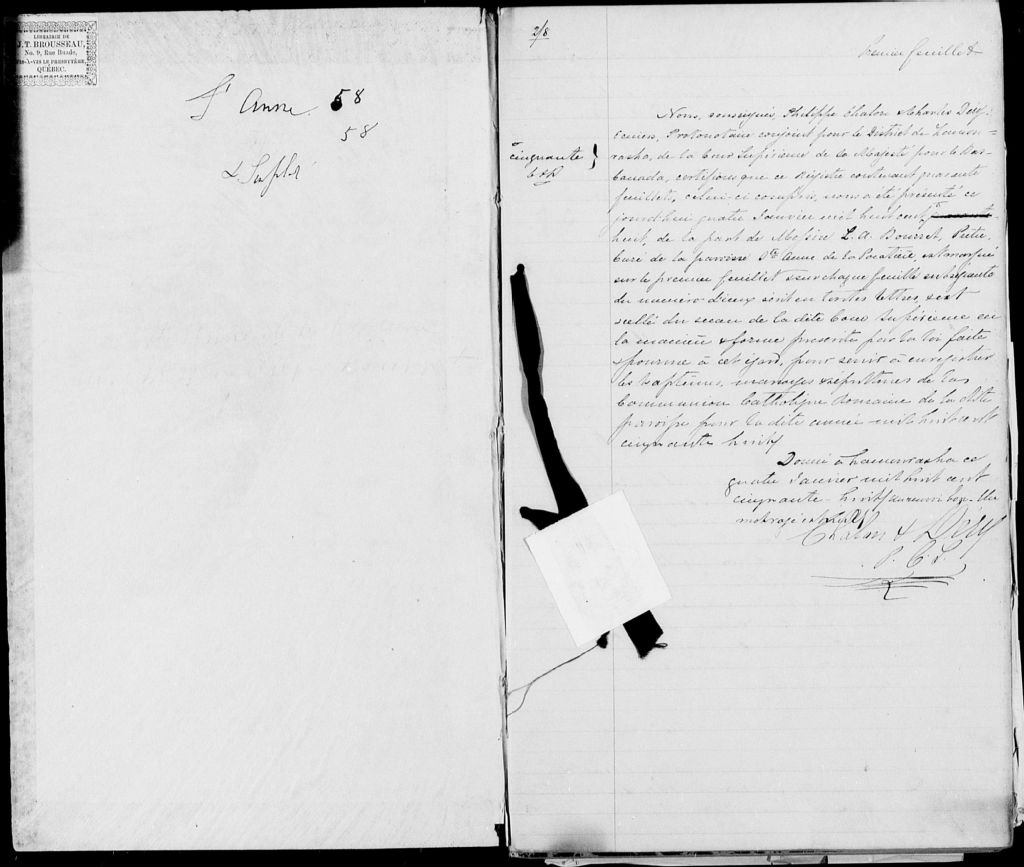 LIBRAIRIE DE
J.T. BROUSSEAU,
No. 9, Rue Buade,
VIS-A-VIS LE PRESBYTÈRE,
QUÉBEC.
St Anne 58
58
& Supplé
2/8
Premier feuillet
cinquante
C & D
Nous, soussignés, Philippe Chalou & Charles Déry
Ecuiers, Protonotaire conjoint pour le District de Kamou-
raska, de la Cour Supérieure de Sa Majesté pour le Bas-
Canada, certifions que ce Régistre contenant quarante
feuillets, celui-ci compris, nous a été présenté ce
jourd'hui quatre Janvier mil huit cent
huit, de la part de Messire L. A. Bourret, Prêtre,
Curé de la paroisse Ste Anne de la Pocatière, est marqué
sur le premier feuillet & sur chaque feuille subséquente
du numéro d'iceux écrit en toutes lettres, & est
scellé du sceau de la dite Cour Supérieure en
la manière & forme prescrite par la loi faite
& pourvue à cet égard, pour servir à enregistrer
les baptêmes, mariages & sépultures de la
Communion Catholique Romaine de la dite
paroisse pour la dite année mil huit cent
cinquante huit
Donné à Kamouraska ce
quatre Janvier mil huit cent
cinquante-huit au renvoi bon. Un
mot rayé est nul
Chalou & Déry
P. C. S.